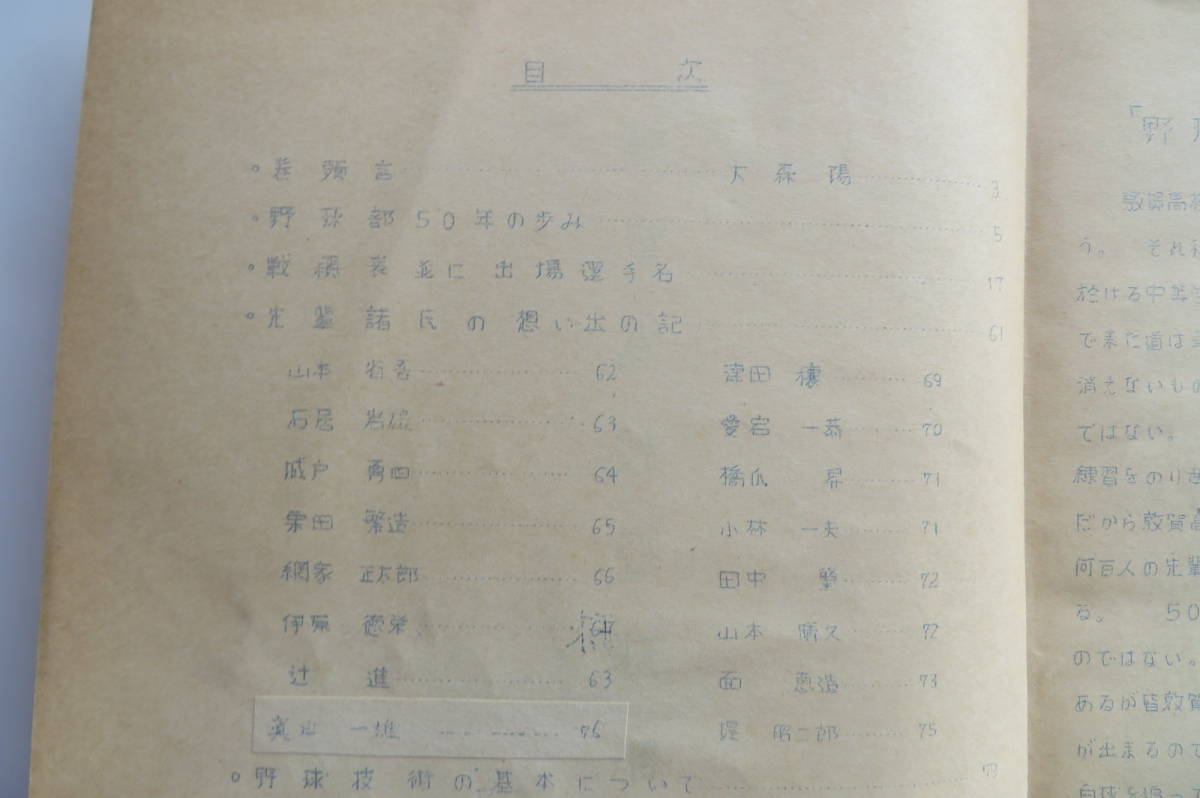 目　次
◦ 巻頭言 大森 陽 3
◦ 野球部50年の歩み 5
◦ 戦績表並に出場選手名 17
◦ 先輩諸氏の想い出の記 61
山本 62
石居 岩雄 63
城戸 勇四 64
粟田 繁造 65
網家 正太郎 66
伊原 徳栄
辻 進 63
一雄 76
津田 穰 69
愛宕 一恭 70
橋爪 昇 71
小林 一夫 71
田中 肇 72
山本 勝久 72
面 恵造 73
堤 昭二郎 75
◦ 野球技術の基本について 79
「野球
敦賀高校
う。　それ
於ける中等
で来た道は
消えないもの
ではない。
練習をのり
だから敦賀高
何百人の先輩
る。　50
のではない。
あるが皆敦賀
が出来るので
白球を追って